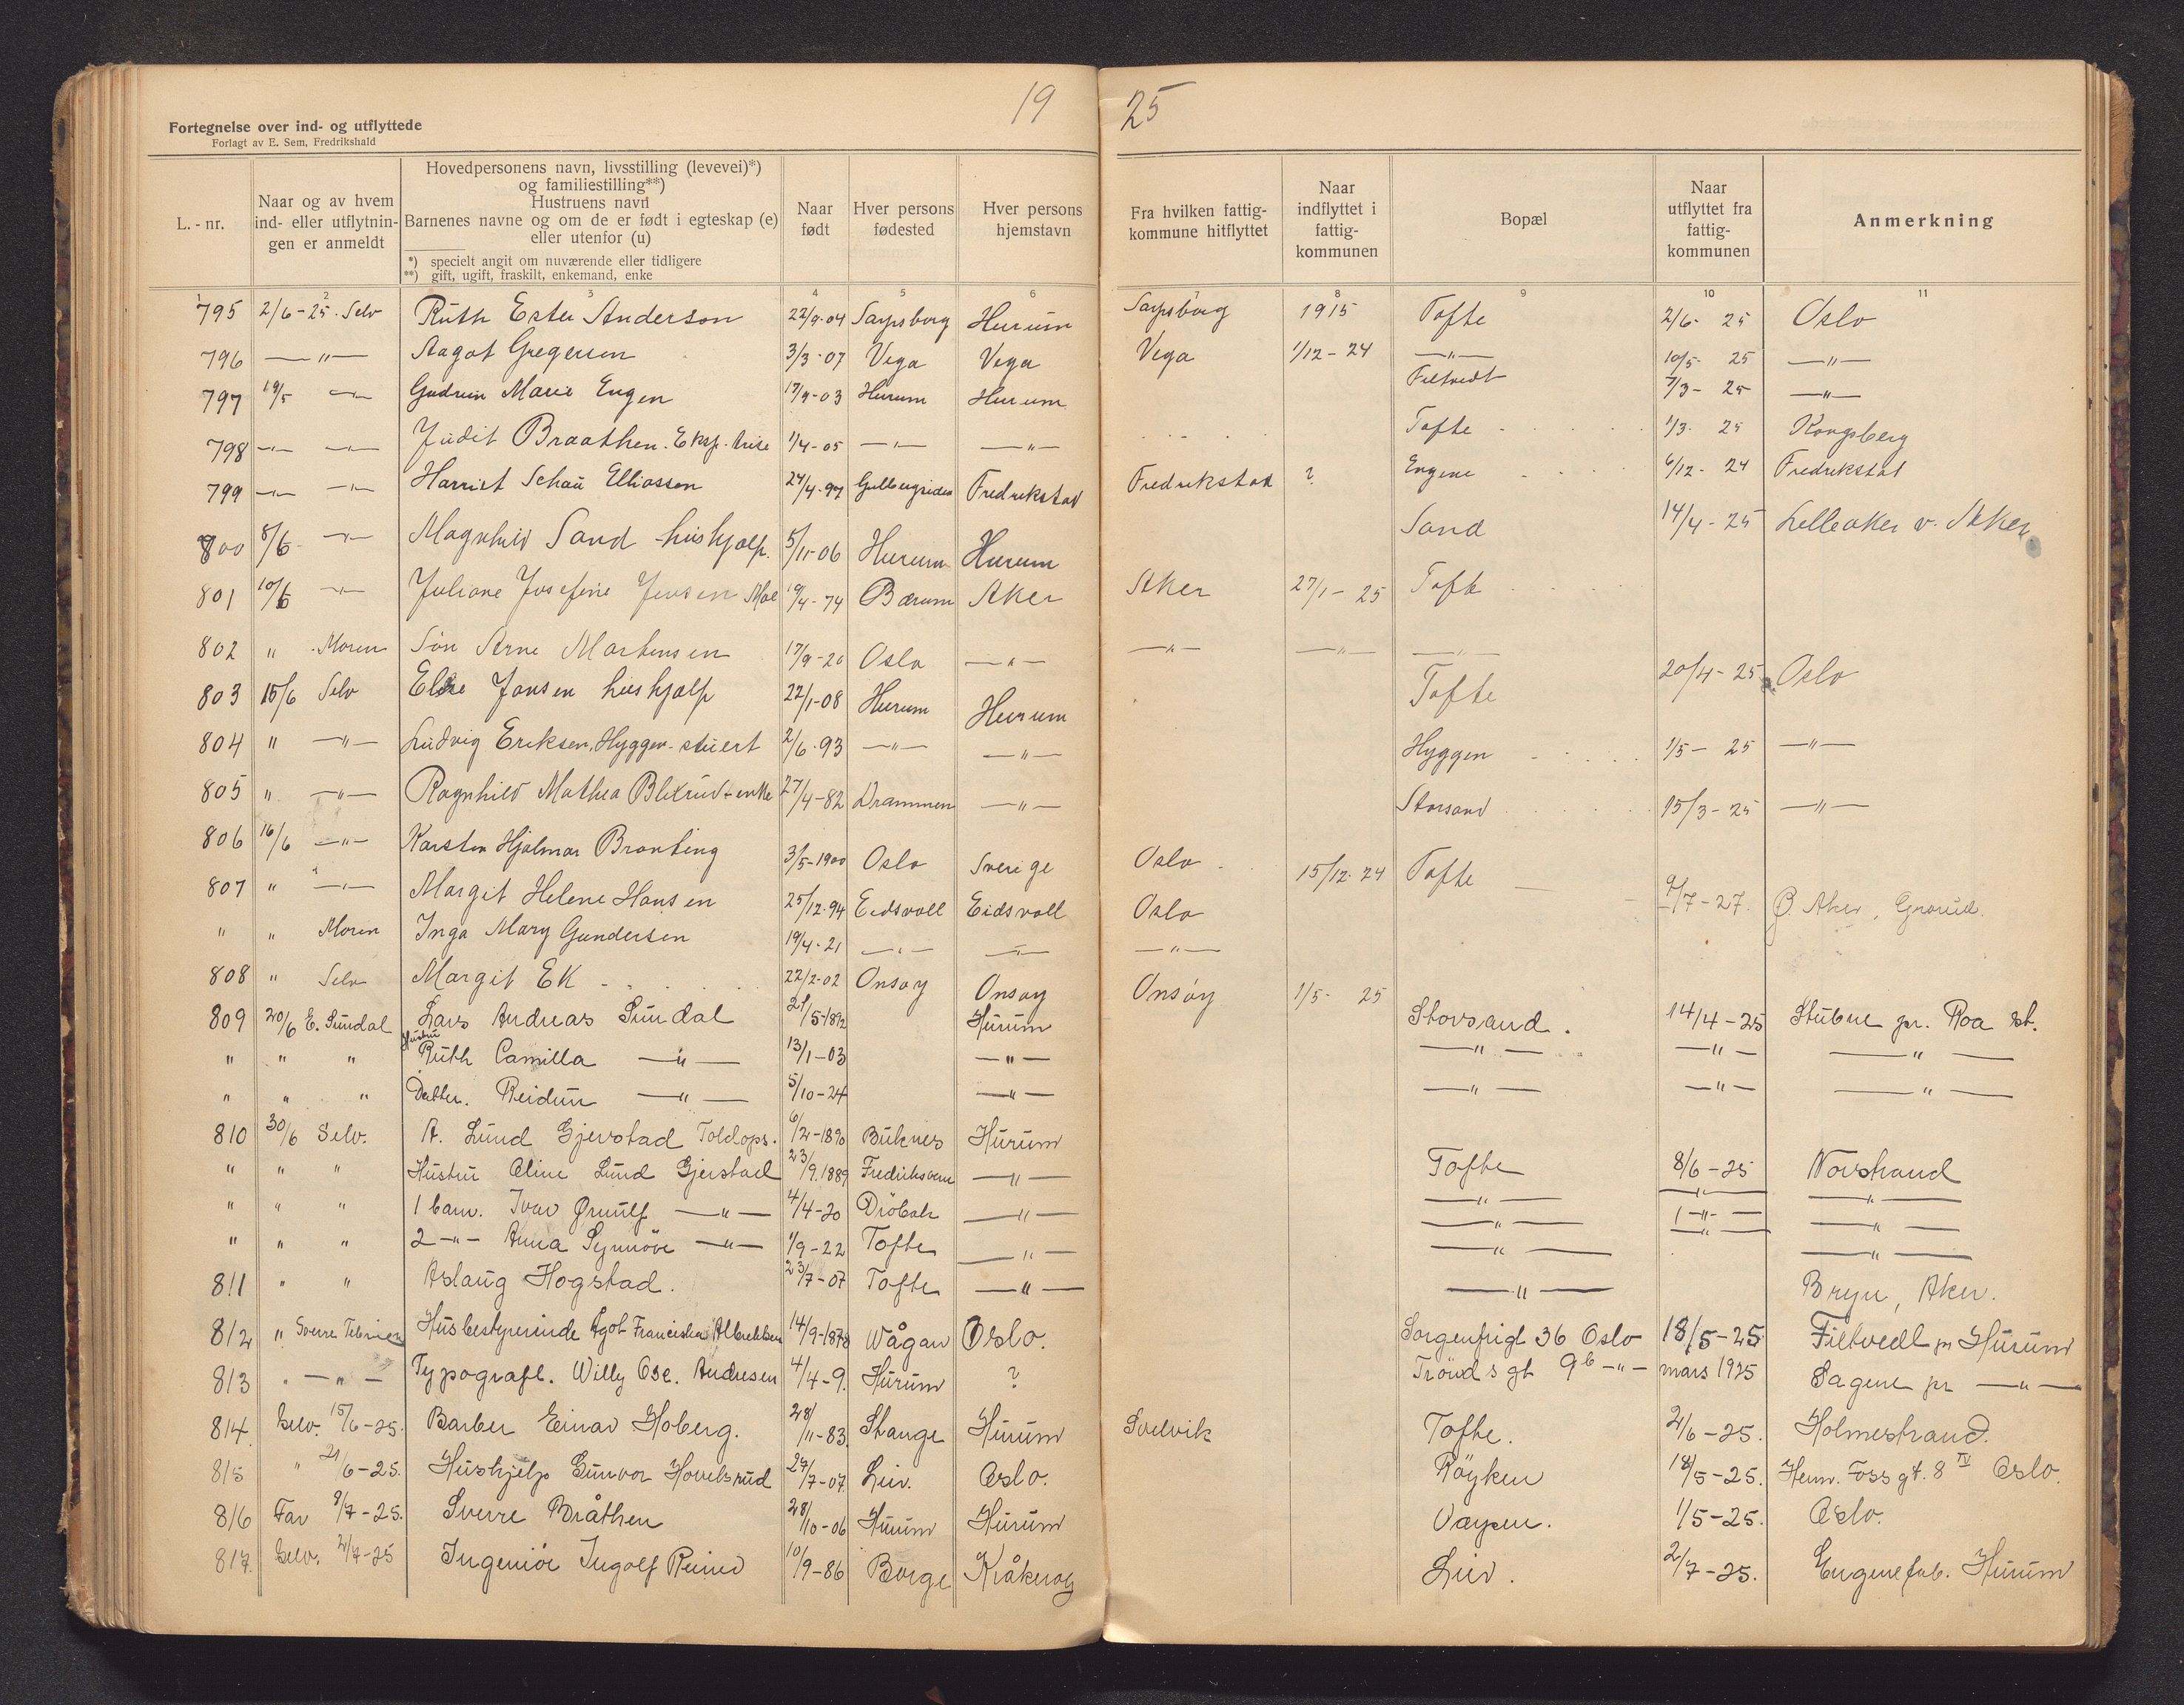 19 25
Fortegnelse over ind- og utflyttede
Forlagt av E. Sem, Fredrikshald
L.-nr.
Naar og av hvem
ind- eller utflytnin-
gen er anmeldt
Hovedpersonens navn, livsstilling (levevei)*)
og familiestilling**)
Hustruens navn
Barnenes navne og om de er født i egteskap (e)
eller utenfor (u)
*) specielt angit om nuværende eller tidligere
**) gift, ugift, fraskilt, enkemand, enke
Naar
født
Hver persons
fødested
Hver persons
hjemstavn
Fra hvilken fattig-
kommune hitflyttet
Naar
indflyttet i
fattig-
kommunen
Bopæl
Naar
utflyttet fra
fattig-
kommunen
Anmerkning
1 2 3 4 5 6 7 8 9 10 11
795 2/6-25. Selv Ruth Ester Anderson 22/9-04 Sarpsborg Hurum Sarpsborg 1915 Tofte 2/6- 25 Oslo
796 —"— Aagot Gregersen 3/3-07 Vega Vega Vega 1/12-24 —"— 10/5- 25 —"—
797 19/5 —"— Gudrun Marie Engen 17/9-03 Hurum Hurum Filtvedt 7/3- 25 —"—
798 —"— —"— Judit Braathen. Eksp. trise 1/4-05 —"— —"— Tofte 1/3- 25 Kongsberg
799 —"— —"— Harriet Schau Elliassen 24/4-97 Fredrikstad Fredrikstad ? Engene 6/12- 24 Fredrikstad
800 8/6- —"— Magnhild Sand hushjælp. 5/11-06 Hurum Hurum Sand 14/4-25 Lilleaker v. Aker
801 10/6 —"— Juliane Josefine Jensen Moe 19/4-74 Bærum Aker Aker 27/1-25 Tofte
802 " Moren Søn Arne Martensen 17/9-20 Oslo —"— —"— —"— —"—
803 15/6 Selv Jansen hushjælp 22/1-08 Hurum Hurum Tofte 20/4-25 Oslo
804 " —"— Ludvig Eriksen, Hyggen-stuert 2/6-93 —"— —"— Hyggen 1/5- 25 —"—
805 " —"— Ragnhild Mathea Blixrud-enke 27/4-82 Drammen —"— Storsand 15/3-25 —"—
806 16/6 —"— Karsten Hjalmar Branting 3/5-1900 Oslo Sverige Oslo 15/12-24 Tofte
807 " —"— Margit Helene Hansen 25/12-94 Eidsvoll Eidsvoll Oslo 9/7-27. Ø. Aker, Grorud.
" " Moren Inga Mary Gundersen 19/4-21 —"— —"— —"—
808 " Selv Margit Ek 22/2-02 Onsøy Onsøy Onsøy 1/5- 25
809 20/6 E. Sundal Lars Andreas Sundal 21/5-1892 Hurum Storsand. 14/4-25 Stubne pr. Roa st.
" " " Hustru Ruth Camilla —"— 13/1-03 —"— —"— —"— —"—
" " " Datter. Reidun —"— 5/10-24 —"— —"— —"— —"—
810 30/6 Selv. A. Lund Gjerstad Toldops. 6/2-1890 Buknes Hurum Tofte 8/6-25 Norstrand
" " " Hustru Aline Lund Gjerstad 23/9.1889 Fredriksværn —"— —"— —"— —"—
" " " 1 barn. Ivar Ørnulf —"— 4/4-20 Drøbak —"— —"— —"— —"—
" " " 2 —"— Anna Synnøve —"— 1/9-22 Tofte —"— —"— —"— —"—
811 " " Aslaug Hogstad. 23/7-07 Tofte —"— —"— Bryn, Aker.
812 " Sverre Husbestyrerinde Agot Franciska Albrektsen 14/9-1878 Wågan Oslo. Sorgenfrigt 36 Oslo 18/5-25 Filtvedt pr Hurum
813 " —"— Typografl. Willy Osc. Andresen 4/4-9. Hurum ? Tröndsgt 9b —"— mars 1925 Sagene pr —"—
814. Selv. 15/6-25. Barber Einar Hoberg. 28/11-83. Stange Hurum Svelvik Tofte. 2/6-25. Holmestrand.
815 " 21/6-25. Hushjelp Gunvor Hovelsrud 27/7-07 Lier. Oslo. Röyken 18/5-25. Henr. Foss gt. 8 IV Oslo.
816 Far 9/7-25. Sverre Bråthen 28/10-06 Hurum Hurum 1/5-25. Oslo.
817. Selv. 2/7-25 Ingeniör Ingolf 10/9-86 Borge Kråkeröy Lier. 2/7-25. Engenefab. Hurum